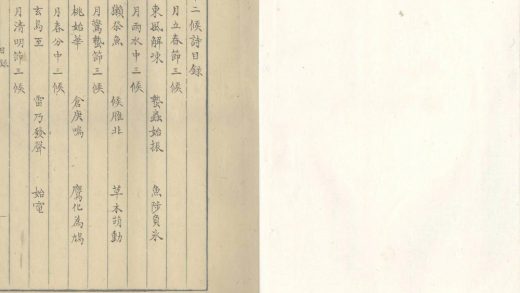 二候詩目錄
月立春節三候
東風解凍 蟄蟲始振 魚陟負氷
月雨水中三候
獺祭魚 候雁北 草木萌動
月驚蟄節三候
桃始華 倉庚鳴 鷹化為鳩
月春分中三候
玄鳥至 雷乃發聲 始電
月清明節三候
目錄